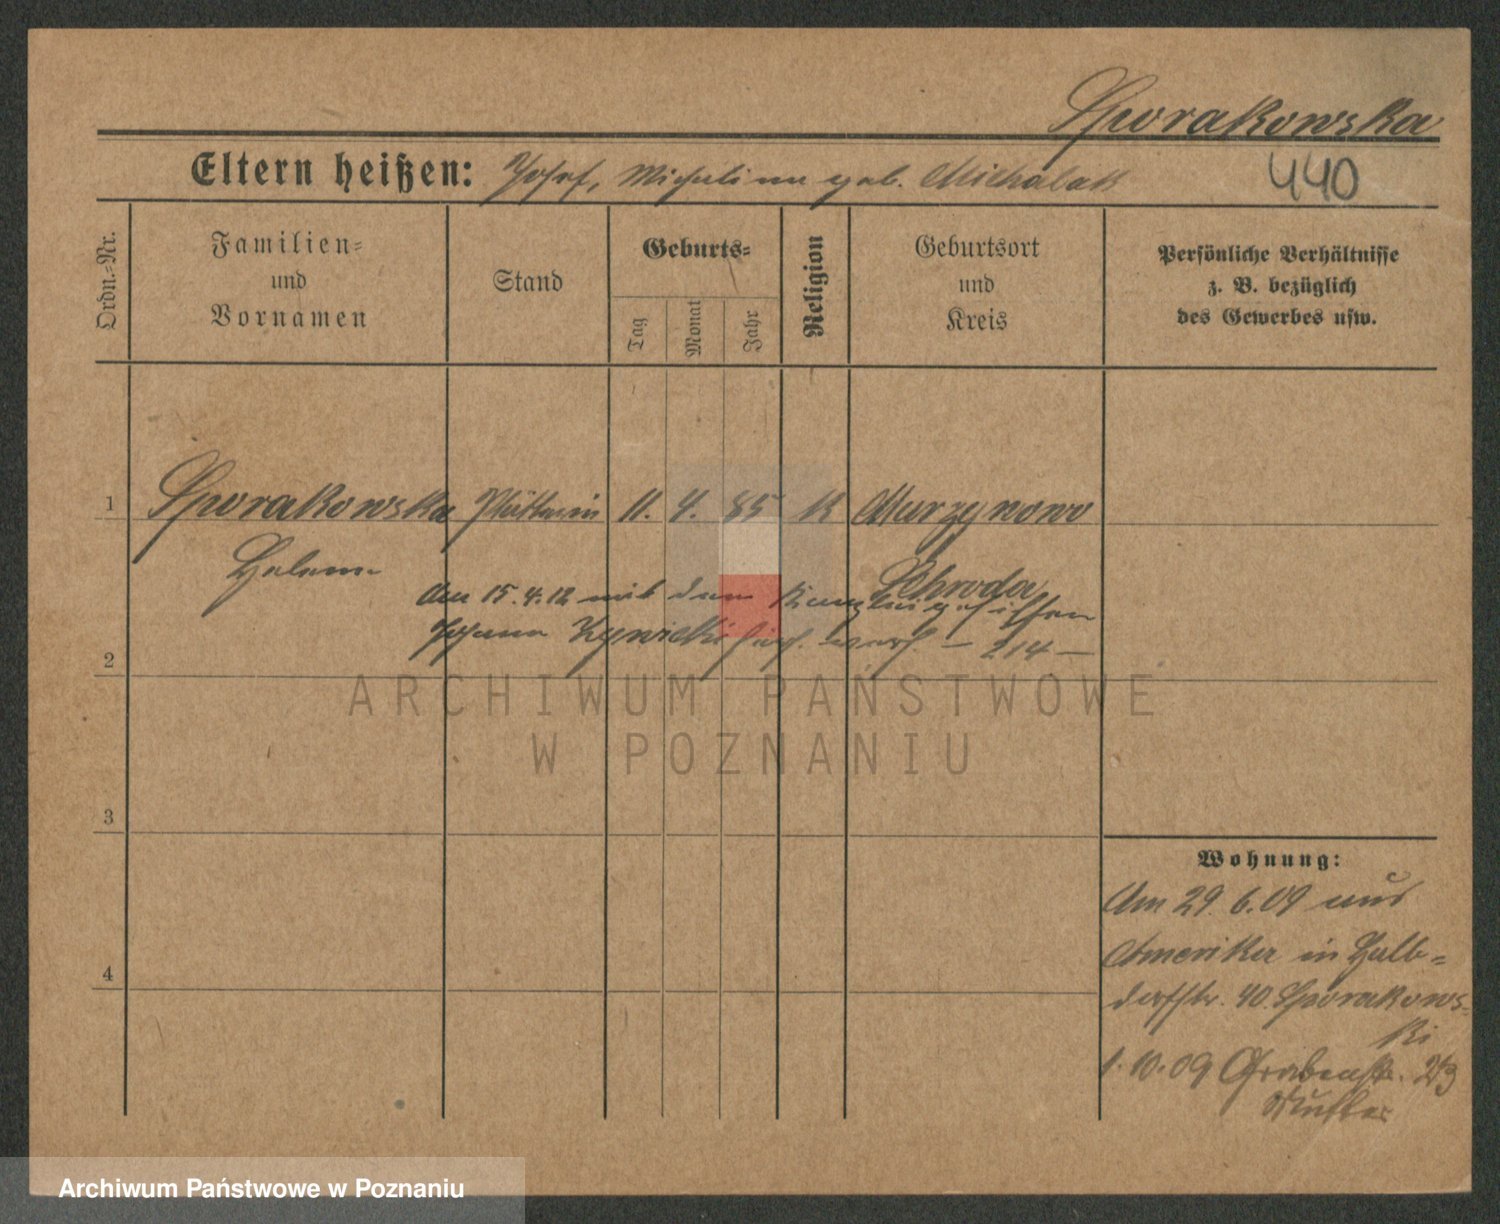 Sporakowska
Eltern heißen: Josef, Michalina geb. Michalak
440
Ordn.-Nr.
Familien-
und
Vornamen
Stand
Geburts-
Tag
Monat
Jahr
Religion
Geburtsort
und
Kreis
Persönliche Verhältnisse
z. B. bezüglich
des Gewerbes usw.
1 Sporakowska Plätterin 11. 4. 85 K Murzynowo
Helena
Schroda
Am 15.4.12 mit dem Kanzleigehilfen
Johann
214
2
3
4
Wohnung:
Am 29. 6. 09 aus
Amerika in Halb-
dorfstr. 40. Sporakows-
ki
1. 10. 09 Grabenstr.
Mutter
ARCHIWUM PAŃSTWOWE
W POZNANIU
Archiwum Państwowe w Poznaniu